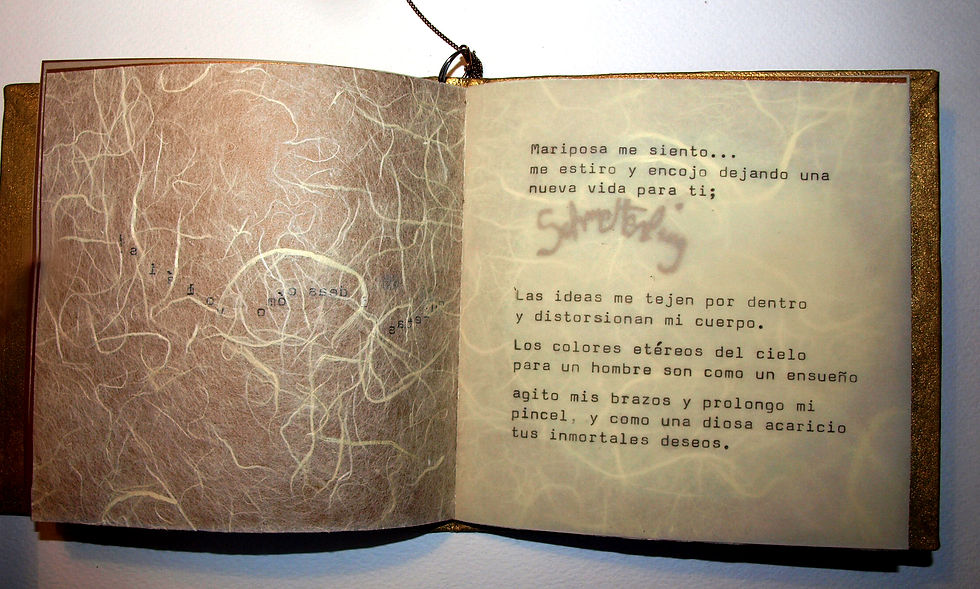 Mariposa me siento...
me estiro y encojo dejando una
nueva vida para ti;
Las ideas me tejen por dentro
y distorsionan mi cuerpo.
Los colores etéreos del cielo
para un hombre son como un ensueño
agito mis brazos y prolongo mi
pincel, y como una diosa acaricio
tus inmortales deseos.